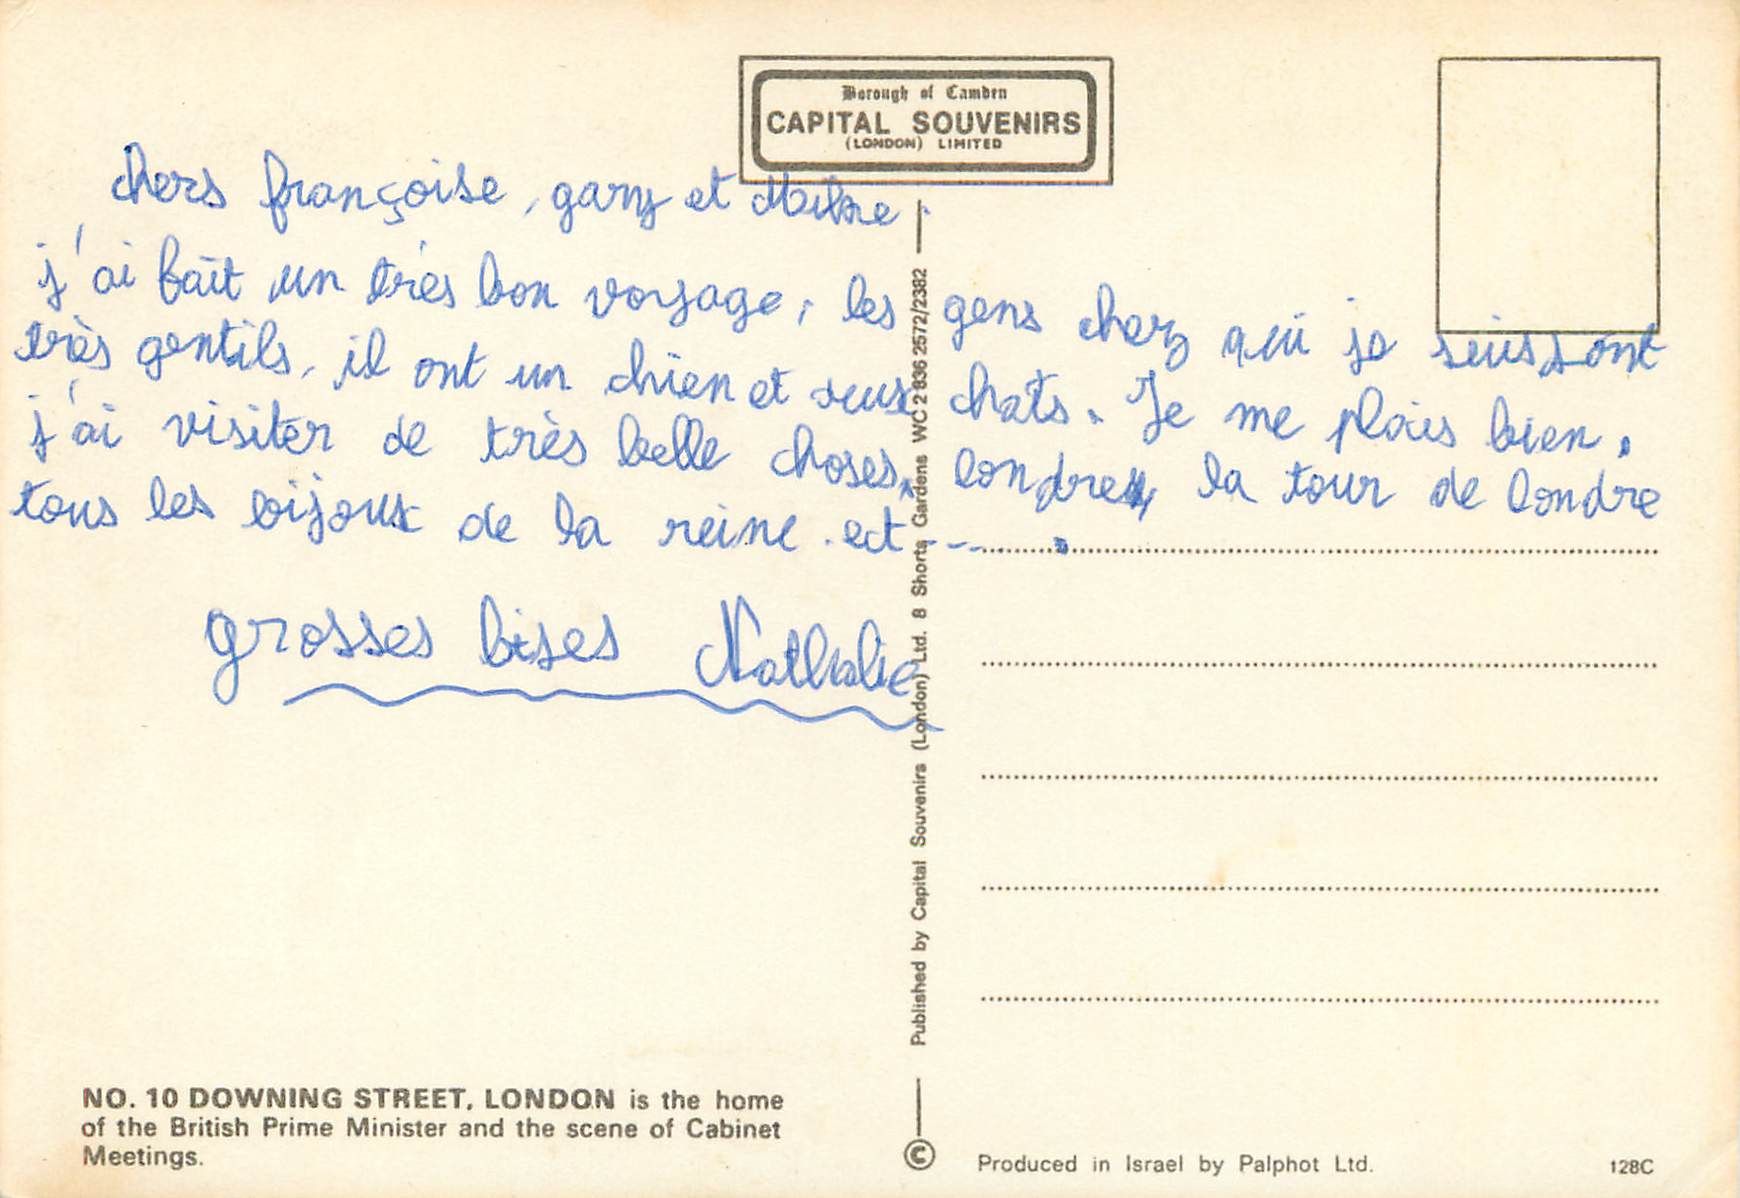 Borough of Camden
CAPITAL SOUVENIRS
(LONDON) LIMITED
chers françoise, gary et
j'ai fait un très bon voyage, les gens chez qui je suis sont
très gentils, il ont un chien et deux chats. Je me plais bien.
j'ai visiter de très belle choses, londres, la tour de londre
tous les bijoux de la reine ect-----.
grosses bises Nathalie
Published by Capital Souvenirs (London) Ltd. 8 Shorts Gardens WC2 836 2572/2382
NO. 10 DOWNING STREET, LONDON is the home
of the British Prime Minister and the scene of Cabinet
Meetings.
©
Produced in Israel by Palphot Ltd.
128C